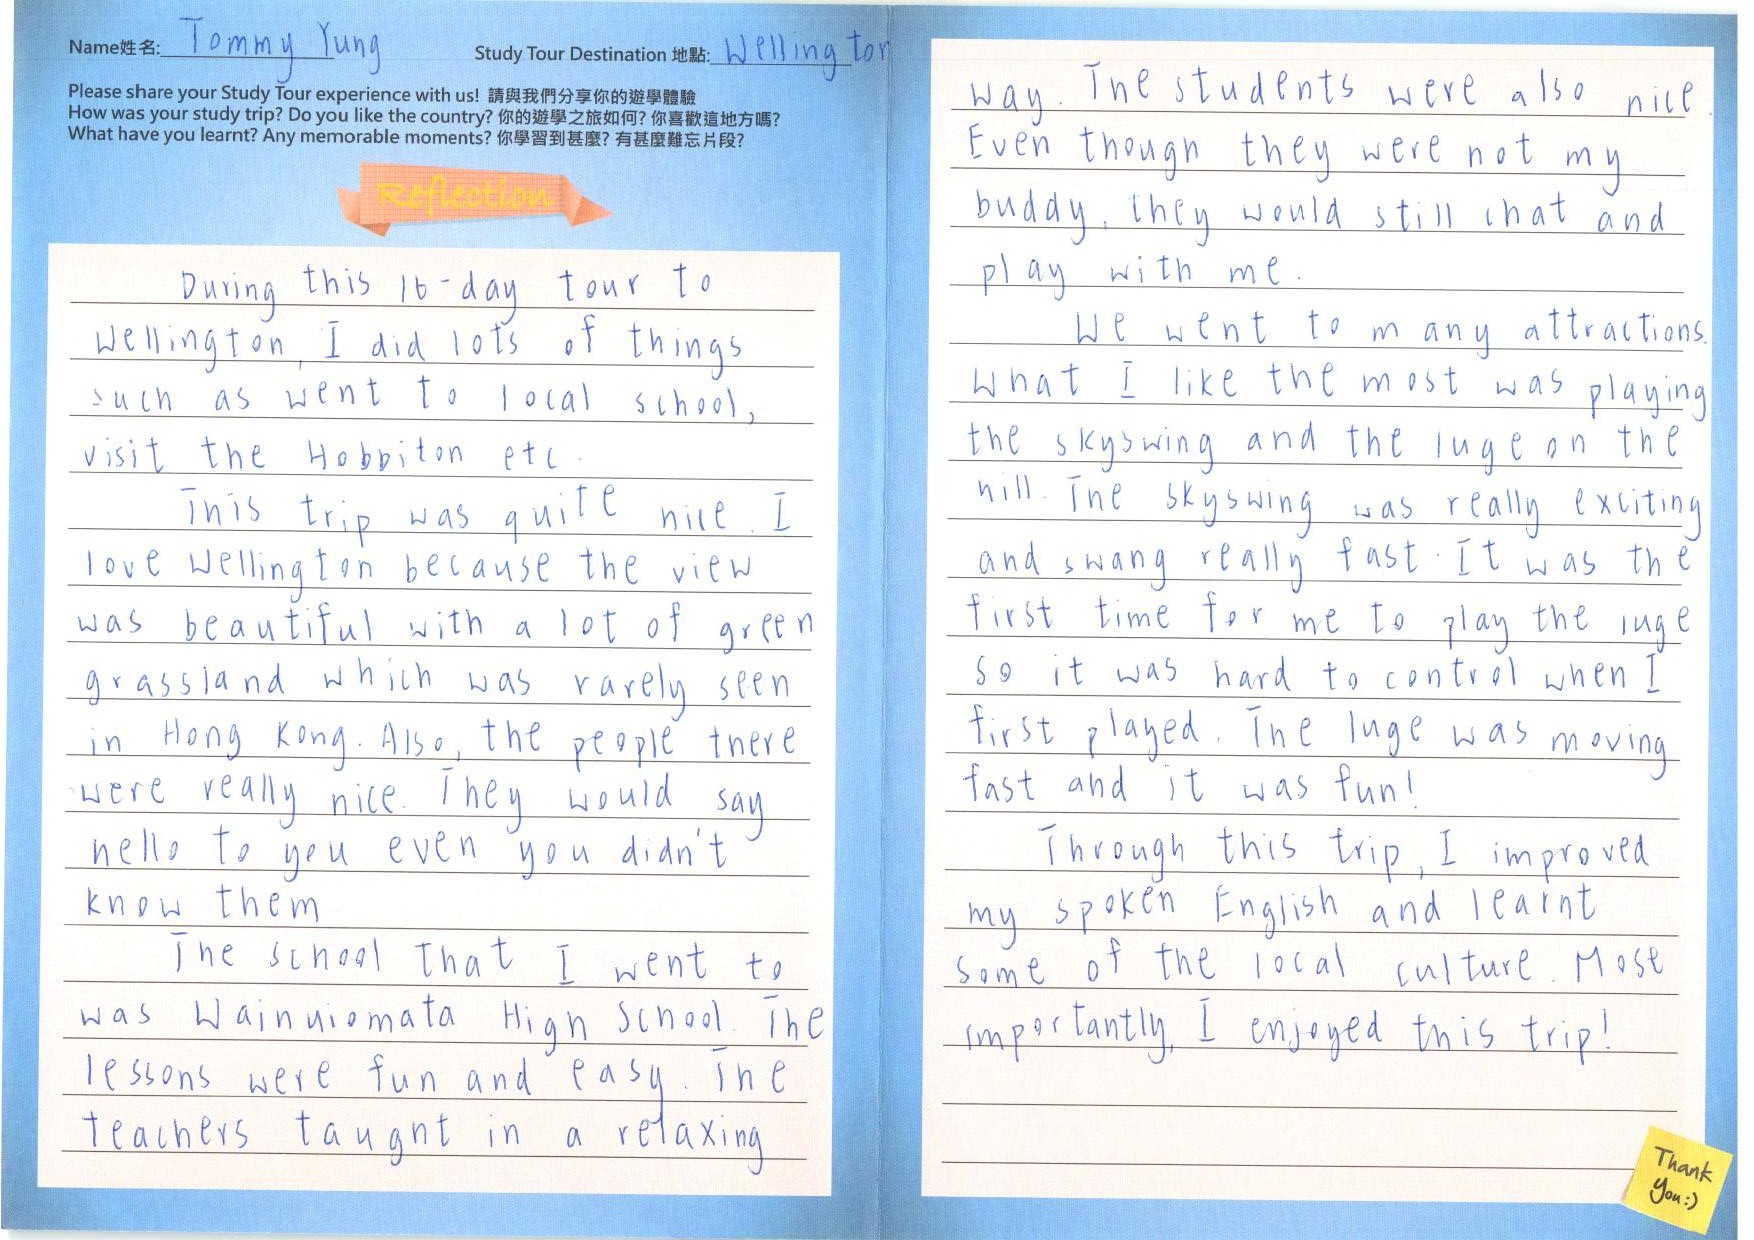 Name姓名: Tommy Yung
Study Tour Destination 地點: Wellington
Please share your Study Tour experience with us! 請與我們分享你的遊學體驗
How was your study trip? Do you like the country? 你的遊學之旅如何? 你喜歡這地方嗎?
What have you learnt? Any memorable moments? 你學習到甚麼? 有甚麼難忘片段?
Reflection
During this 16-day tour to
Wellington, I did lots of things
such as went to local school,
visit the Hobbiton etc.
This trip was quite nice. I
love Wellington because the view
was beautiful with a lot of green
grassland which was rarely seen
in Hong Kong. Also, the people there
were really nice. They would say
hello to you even you didn't
know them
The school that I went to
was Wainuiomata High School. The
lessons were fun and easy. The
teachers taught in a relaxing
way. The students were also nice.
Even though they were not my
buddy, they would still chat and
play with me.
We went to many attractions.
What I like the most was playing
the skyswing and the luge on the
hill. The skyswing was really exciting
and swang really fast. It was the
first time for me to play the luge
so it was hard to control when I
first played. The luge was moving
fast and it was fun!
Through this trip, I improved
my spoken English and learnt
some of the local culture. Most
importantly, I enjoyed this trip!
Thank
You:)